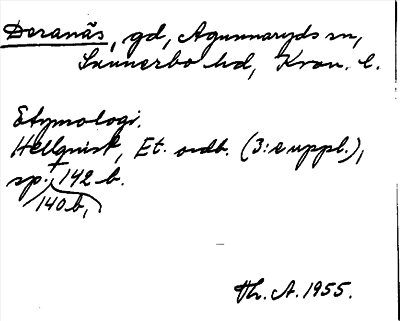 Doranäs, gd, Agunnaryds sn,
Sunnerbo hd, Kron. l.
Etymologi.
Hellquist, Et. ordb. (3:e uppl.),
sp. 142 b.
140 b,
Th. A. 1955.